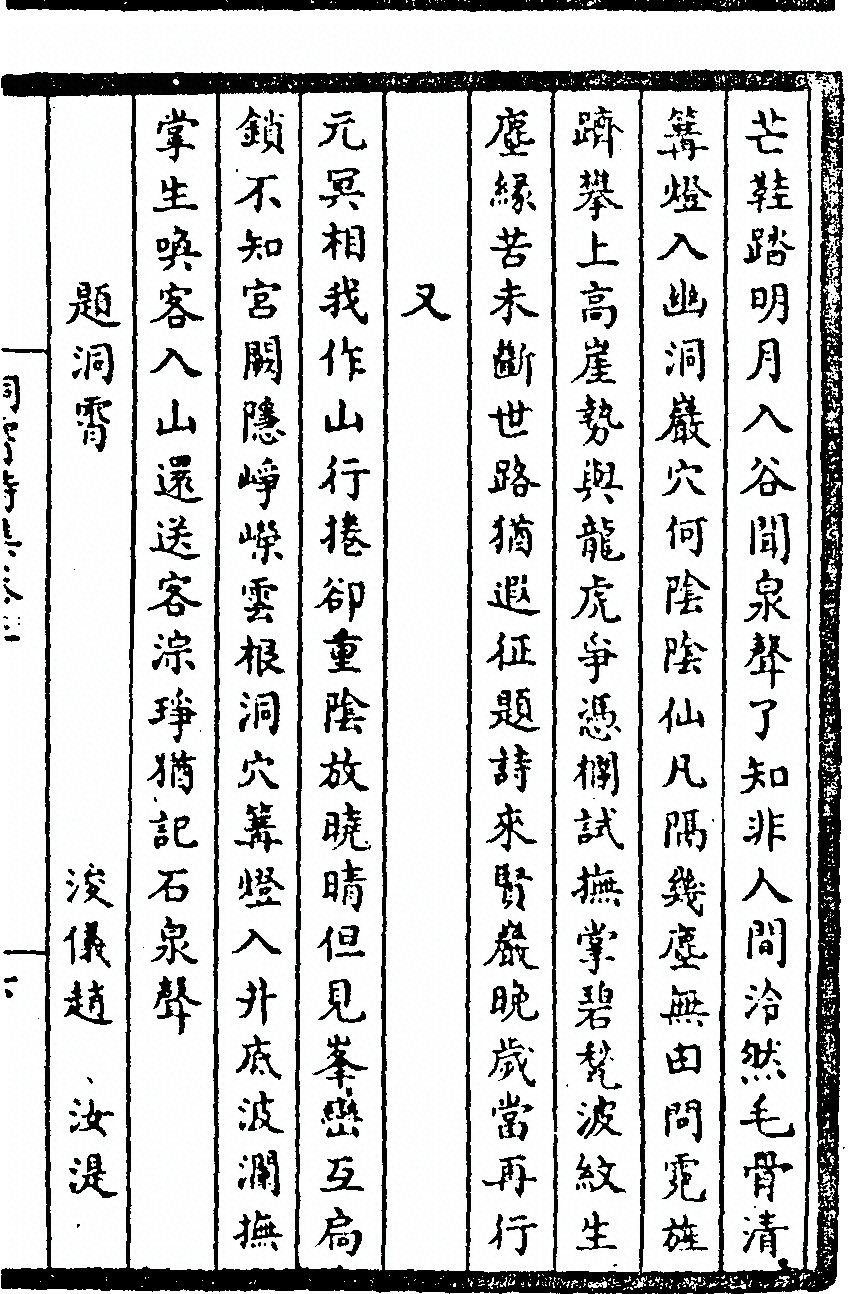 芒鞋踏明月入谷聞泉聲了知非人間泠然毛骨清
篝燈入幽洞巖穴何陰陰仙凡隔幾塵無由問霓旌
躋攀上高崖勢與龍虎爭憑欄試撫掌碧甃波紋生
塵緣苦未斷世路猶遐征題詩來賢巖晚歲當再行
又
元冥相我作山行捲卻重陰放曉晴但見峯巒互扃
鎖不知宮闕隱崢嶸雲根洞穴篝燈入井底波瀾撫
掌生喚客入山還送客淙琤猶記石泉聲
題洞霄 浚儀趙 汝湜
洞霄詩集卷